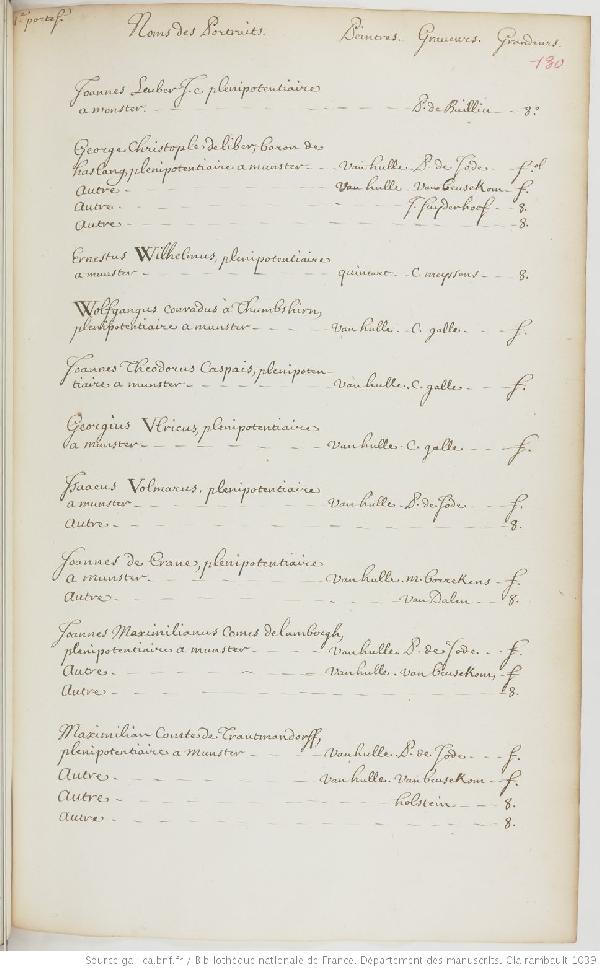 1er portef.
Noms des Portraits. Peintres. Graveurs. Grandeurs.
130
Joannes Leuber J. C. plenipotentiaire
a munster. P. de Bailliu 8º
George Christople deliber, baron de
haslang, plenipotentiaire a munster vanhulle P. de Jode fol
Autre. vanhulle vanbeusekom f.
Autre. J. Suyderhoef 8.
Autre 8.
Ernestus Wilhelmus, plenipotentiaire
a munster quintart C. meyssens 8.
Wolfgangus conradus à Thumbshirn,
plenipotentiaire a munster vanhulle C. galle f.
Joannes Theodorus Caspars, plenipoten-
tiaire a munster vanhulle C. galle f.
Georgius Vlricus, plenipotentiaire
a munster vanhulle C. galle f.
Isaacus Volmarus, plenipotentiaire
a munster vanhulle P. de Jode f.
Autre 8.
Joannes de Crane, plenipotentiaire
a munster. vanhulle m. borrekens f.
Autre van Dalen 8.
Joannes Maximilianus Comes delamberg,
plenipotentiaire a munster vanhulle P. de Jode f.
Autre. vanhulle van beusekom f.
Autre 8.
Maximilian Comte de Trautmandorff,
plenipotentiaire a munster vanhulle P. de Jode f.
Autre vanhulle vanbeusekom f.
Autre holstein 8.
Autre 8.
Source gallica.bnf.fr / Bibliothèque nationale de France. Département des manuscrits. Clairambault 1039